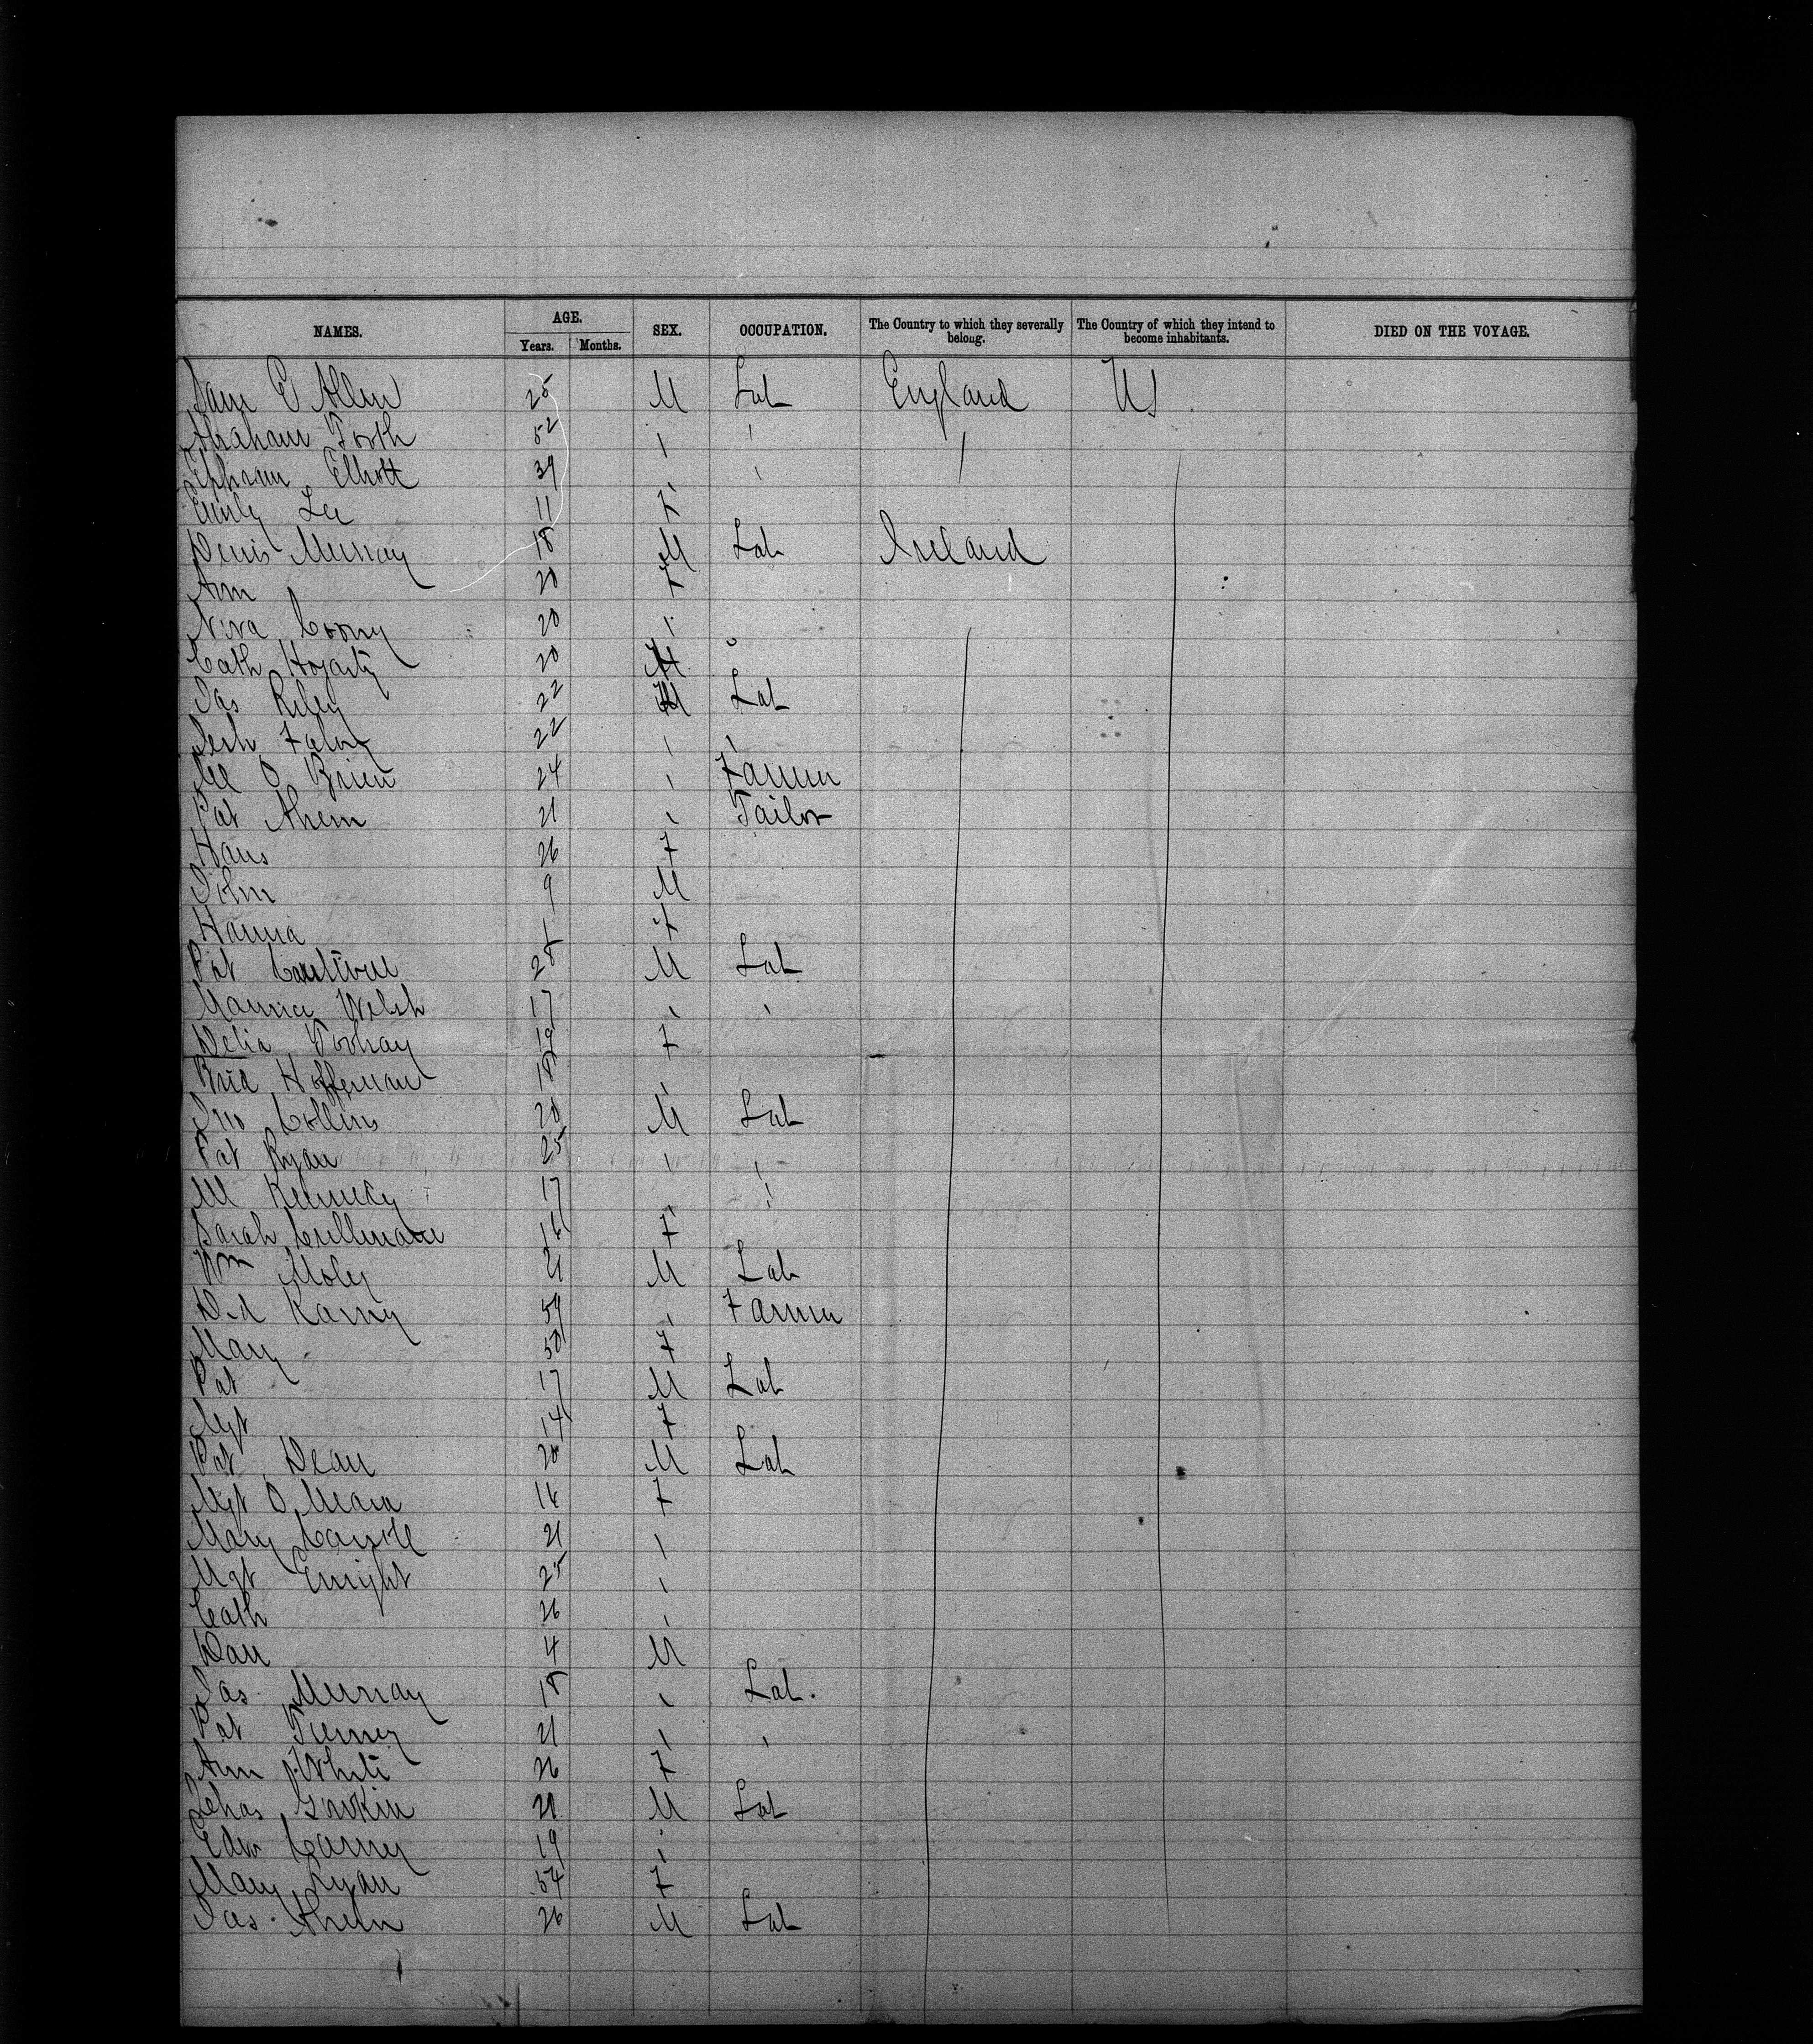 NAMES. AGE. SEX. OCCUPATION. The Country to which they severally belong. The Country of which they intend to become inhabitants. DIED ON THE VOYAGE.
Years. Months.
Sam E Allen 25 M Lab England US
Abraham Tooth 52 " " "
Ephraim Elliott 39 " "
Emily Lee 11 F
Denis Murray 18 M Lab Ireland
Ann 20 F
Nora Coony 20 "
Cath Hogarty 20
Jas Riley 22 M Lab
22 " "
Ml O Brien 24 " Farmer
Pat Ahern 21 " Tailor
Hans 26 F
John 9 M
Hanna 1 F
Pat 28 M Lab
Maurice Welsh 17 " "
Delia Toohay 19 F
Brid Heffernan 18 "
Jno Collins 20 M Lab
Pat Ryan 25 " "
Ml Kennedy 17 " "
Sarah Cullinane 16 F
Wm Moley 21 M Lab
Dd Karney 59 " Farmer
Mary 50 F
Pat 17 M Lab
Mgt 14 F
Pat Dean 20 M Lab
Mgt O Meara 16 F
Mary Carroll 21 "
Mgt Enright 25 "
Cath 26 "
Dan 4 M
Jas Murray 18 " Lab.
Pat Tierney 21 " "
Ann White 26 F
Chas Gorkin 21 M Lab
Edw Carney 19 "
Mary Ryan 54 F
Jas. Ahern 26 M Lab